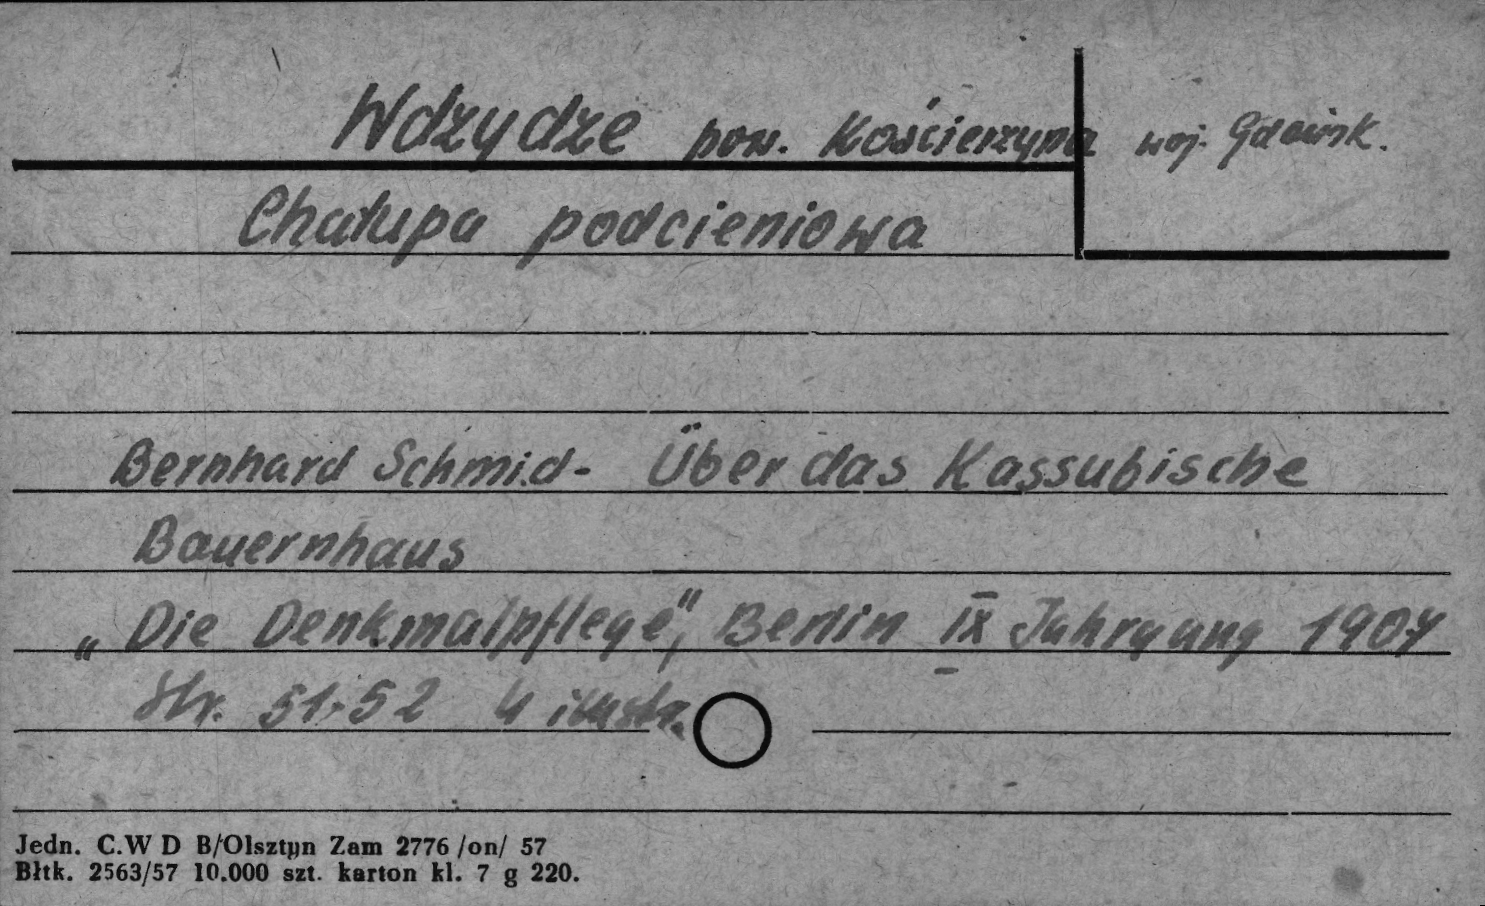 Wdzydze pow. Kościerzyna woj. Gdańsk.
Chałupa podcieniowa
Bernhard Schmid - Über das Kassubische
Bauernhaus
„Die Denkmalpflege", Berlin IX Jahrgang 1907
Str. 51-52 4 ilustr.
Jedn. C.W D B/Olsztyn Zam 2776 /on/ 57
Błtk. 2563/57 10.000 szt. karton kl. 7 g 220.